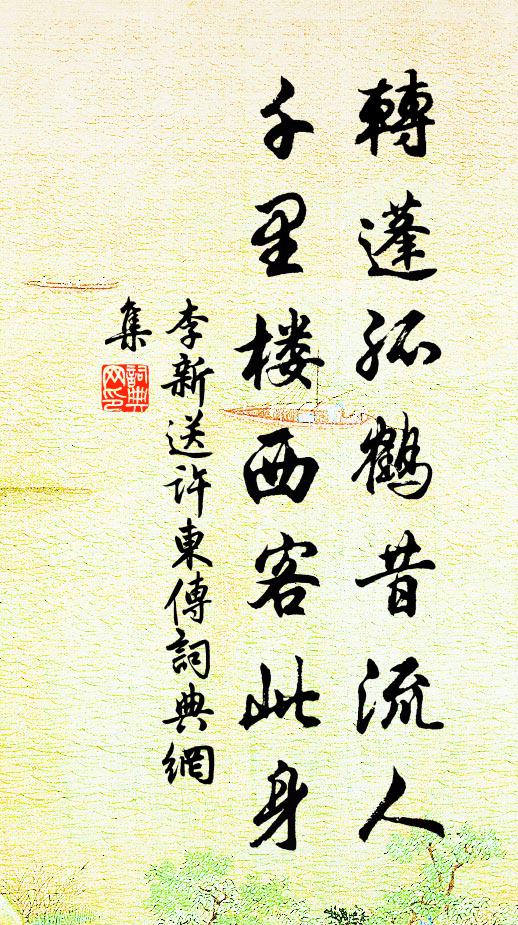 轉蓬孤鶴昔流人
千里楼西客此身
李新送许東傳詞典網
集
詞典
网印